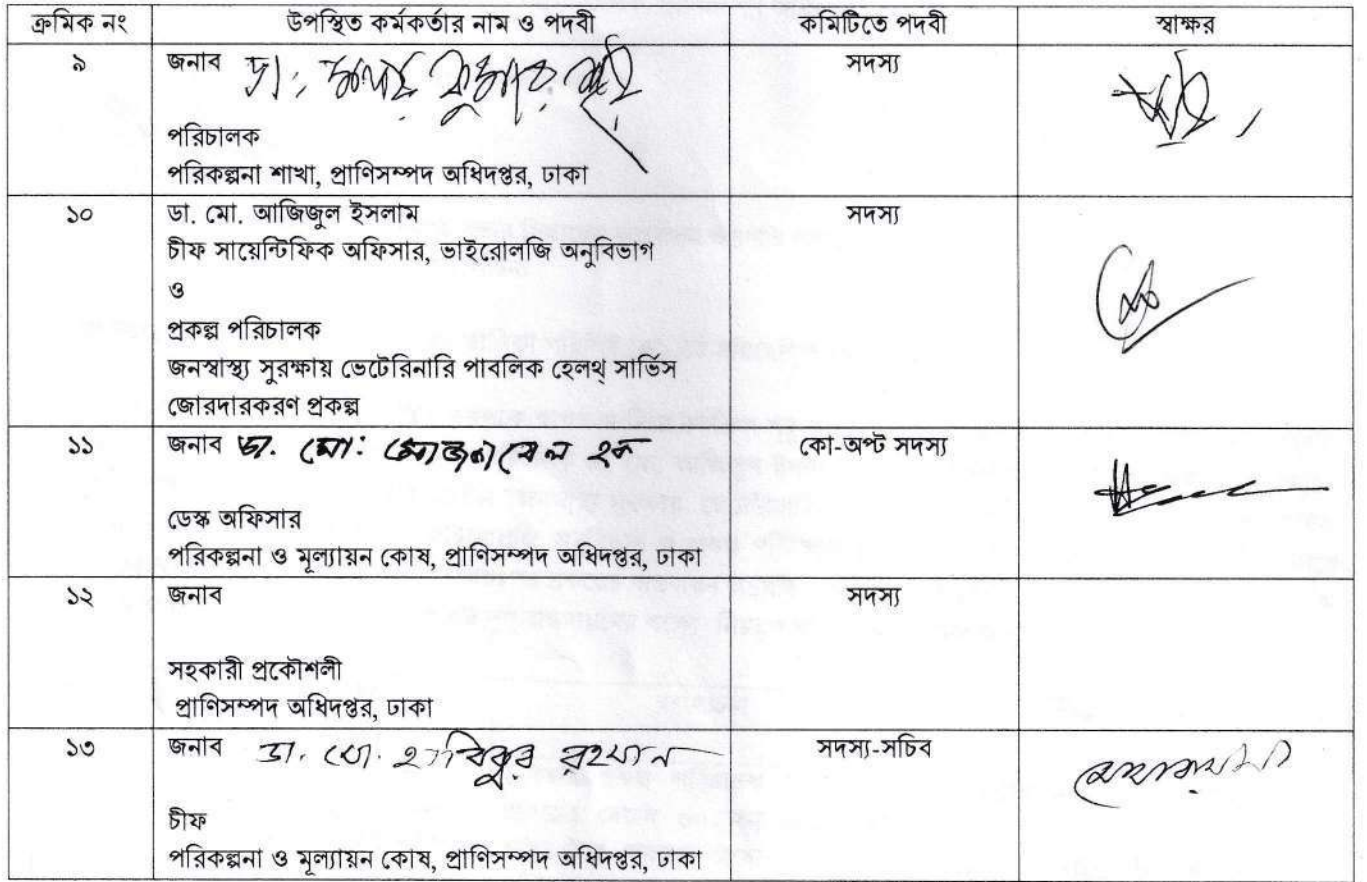 ক্রমিক নং উপস্থিত কর্মকর্তার নাম ও পদবী কমিটিতে পদবী স্বাক্ষর
৯ জনাব ডা: কুমার সদস্য
পরিচালক
পরিকল্পনা শাখা, প্রাণিসম্পদ অধিদপ্তর, ঢাকা
১০ ডা. মো. আজিজুল ইসলাম সদস্য
চীফ সায়েন্টিফিক অফিসার, ভাইরোলজি অনুবিভাগ
ও
প্রকল্প পরিচালক
জনস্বাস্থ্য সুরক্ষায় ভেটেরিনারি পাবলিক হেলথ্ সার্ভিস
জোরদারকরণ প্রকল্প
১১ জনাব ডা. মো: মোজাম্মেল হক কো-অপ্ট সদস্য
ডেস্ক অফিসার
পরিকল্পনা ও মূল্যায়ন কোষ, প্রাণিসম্পদ অধিদপ্তর, ঢাকা
১২ জনাব সদস্য
সহকারী প্রকৌশলী
প্রাণিসম্পদ অধিদপ্তর, ঢাকা
১৩ জনাব ডা. মো. হাবিবুর রহমান সদস্য-সচিব
চীফ
পরিকল্পনা ও মূল্যায়ন কোষ, প্রাণিসম্পদ অধিদপ্তর, ঢাকা